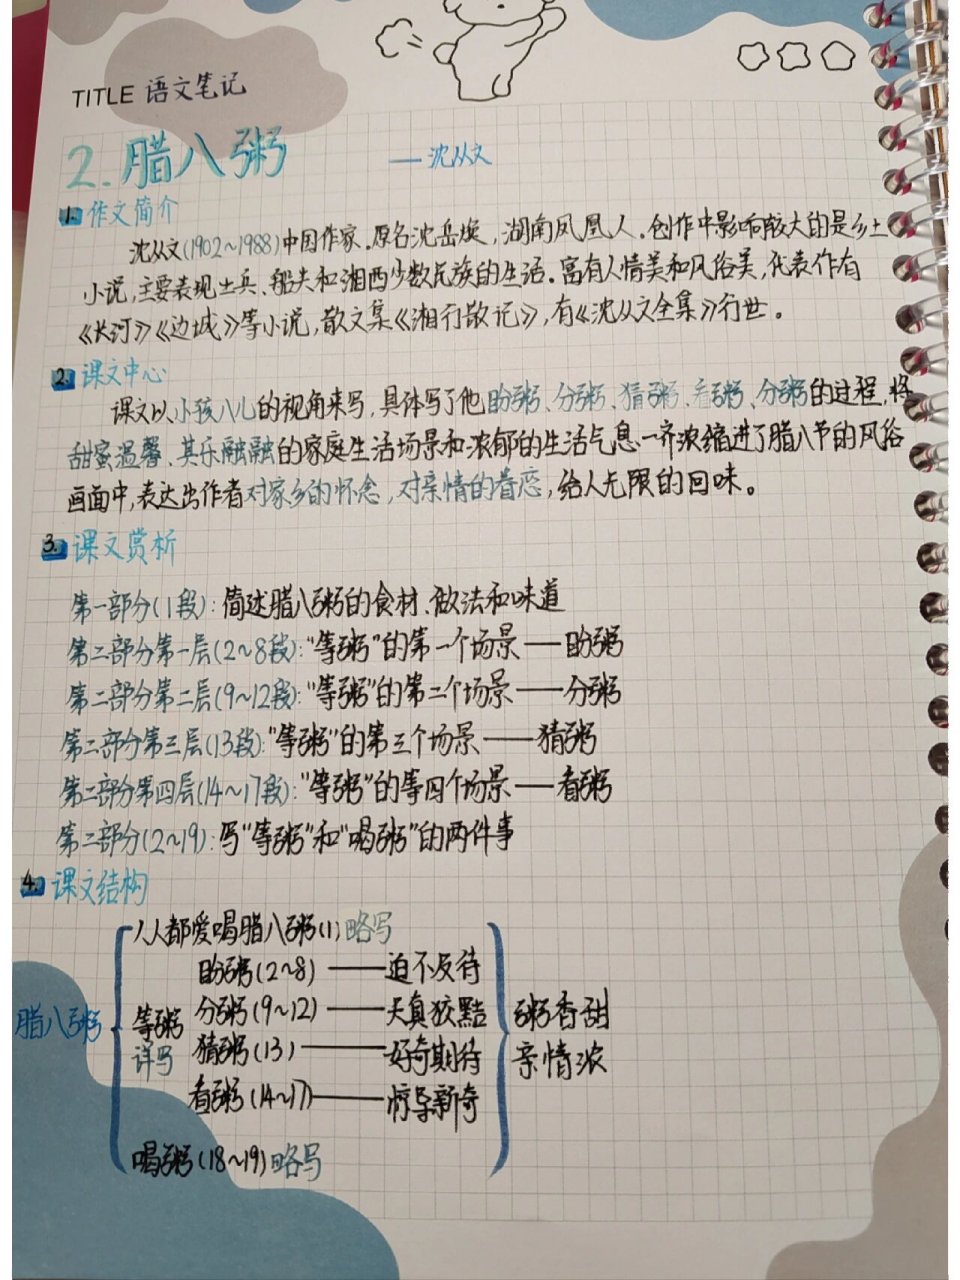 TITLE 语文笔记
2. 腊八粥 — 沈从文
1. 作文简介
沈从文(1902~1988)中国作家.原名沈岳焕,湖南凤凰人.创作中影响较大的是乡土
小说,主要表现士兵、船夫和湘西少数民族的生活.富有人情美和风俗美,代表作有
《长河》《边城》等小说,散文集《湘行散记》,有《沈从文全集》行世。
2. 课文中心
课文以小孩八儿的视角来写,具体写了他盼粥、分粥、猜粥、看粥、分粥的过程,将
甜蜜温馨、其乐融融的家庭生活场景和浓郁的生活气息一齐浓缩进了腊八节的风俗
画面中,表达出作者对家乡的怀念,对亲情的眷恋,给人无限的回味。
3. 课文赏析
第一部分(1段):简述腊八粥的食材、做法和味道
第二部分第一层(2~8段):"等粥"的第一个场景——盼粥
第二部分第二层(9~12段):"等粥"的第二个场景——分粥
第二部分第三层(13段):"等粥"的第三个场景——猜粥
第二部分第四层(14~17段):"等粥"的等四个场景——看粥
第二部分(2~19):写"等粥"和"喝粥"的两件事
4. 课文结构
人人都爱喝腊八粥(1)略写
盼粥(2~8)——迫不及待
腊八粥 等粥 分粥(9~12)——天真狡黠 粥香甜
详写 猜粥(13)——好奇期待 亲情浓
看粥(14~17)——惊异新奇
喝粥(18~19)略写